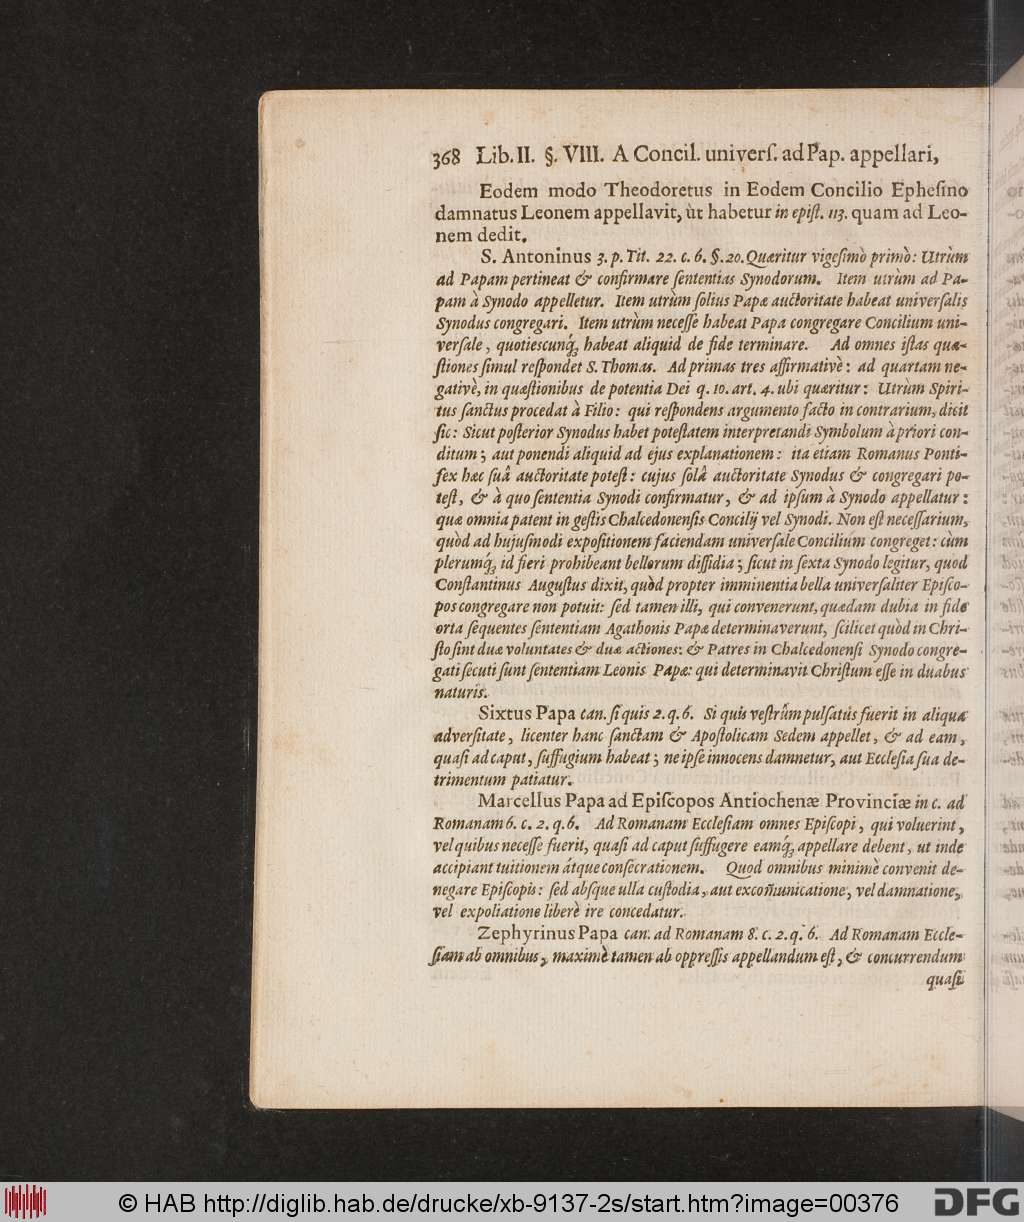 368 Lib. II. §. VIII. A Concil. univerſ. ad Pap. appellari,
Eodem modo Theodoretus in Eodem Concilio Epheſino
damnatus Leonem appellavit, ùt habetur in epiſt. 113. quam ad Leo-
nem dedit.
S. Antoninus 3. p. Tit. 22. c. 6. §. 20. Quæritur vigeſimò primò: Utrùm
ad Papam pertineat & confirmare ſententias Synodorum. Item utrùm ad Pa-
pam à Synodo appelletur. Item utrùm ſolius Papæ auctoritate habeat univerſalis
Synodus congregari. Item utrùm neceſſe habeat Papa congregare Concilium uni-
verſale, quotieſcunq́; habeat aliquid de fide terminare. Ad omnes iſtas quæ-
ſtiones ſimul reſpondet S. Thomas. Ad primas tres affirmativè: ad quartam ne-
gativè, in quæſtionibus de potentia Dei q. 10. art. 4. ubi quæritur: Utrùm Spiri-
tus ſanctus procedat à Filio: qui reſpondens argumento facto in contrarium, dicit
ſic: Sicut poſterior Synodus habet poteſtatem interpretandi Symbolum à priori con-
ditum; aut ponendi aliquid ad ejus explanationem: ita etiam Romanus Ponti-
fex hæc ſuâ auctoritate poteſt: cujus ſolâ auctoritate Synodus & congregari po-
teſt, & à quo ſententia Synodi confirmatur, & ad ipſum à Synodo appellatur:
quæ omnia patent in geſtis Chalcedonenſis Concilij vel Synodi. Non eſt neceſſarium,
quòd ad hujuſmodi expoſitionem faciendam univerſale Concilium congreget: cùm
plerumq́; id fieri prohibeant bellorum diſſidia; ſicut in ſexta Synodo legitur, quod
Conſtantinus Auguſtus dixit, quòd propter imminentia bella univerſaliter Epiſco-
pos congregare non potuit: ſed tamen illi, qui convenerunt, quædam dubia in fide
orta ſequentes ſententiam Agathonis Papæ determinaverunt, ſcilicet quòd in Chri-
ſto ſint duæ voluntates & duæ actiones: & Patres in Chalcedonenſi Synodo congre-
gati ſecuti ſunt ſententiam Leonis Papæ: qui determinavit Chriſtum eſſe in duabus
naturis.
Sixtus Papa can. ſi quis 2. q. 6. Si quis veſtrûm pulſatus fuerit in aliqua
adverſitate, licenter hanc ſanctam & Apoſtolicam Sedem appellet, & ad eam,
quaſi ad caput, ſuffugium habeat; ne ipſe innocens damnetur, aut Eccleſia ſua de-
trimentum patiatur.
Marcellus Papa ad Epiſcopos Antiochenæ Provinciæ in c. ad
Romanam 6. c. 2. q. 6. Ad Romanam Eccleſiam omnes Epiſcopi, qui voluerint,
vel quibus neceſſe fuerit, quaſi ad caput ſuffugere eamq́; appellare debent, ut inde
accipiant tuitionem átque conſecrationem. Quod omnibus minimè convenit de-
negare Epiſcopis: ſed abſque ulla cuſtodia, aut excom̃unicatione, vel damnatione,
vel expoliatione liberè ire concedatur.
Zephyrinus Papa can. ad Romanam 8. c. 2. q. 6. Ad Romanam Eccle-
ſiam ab omnibus, maximè tamen ab oppreſſis appellandum eſt, & concurrendum
quaſi
© HAB http://diglib.hab.de/drucke/xb-9137-2s/start.htm?image=00376
DFG